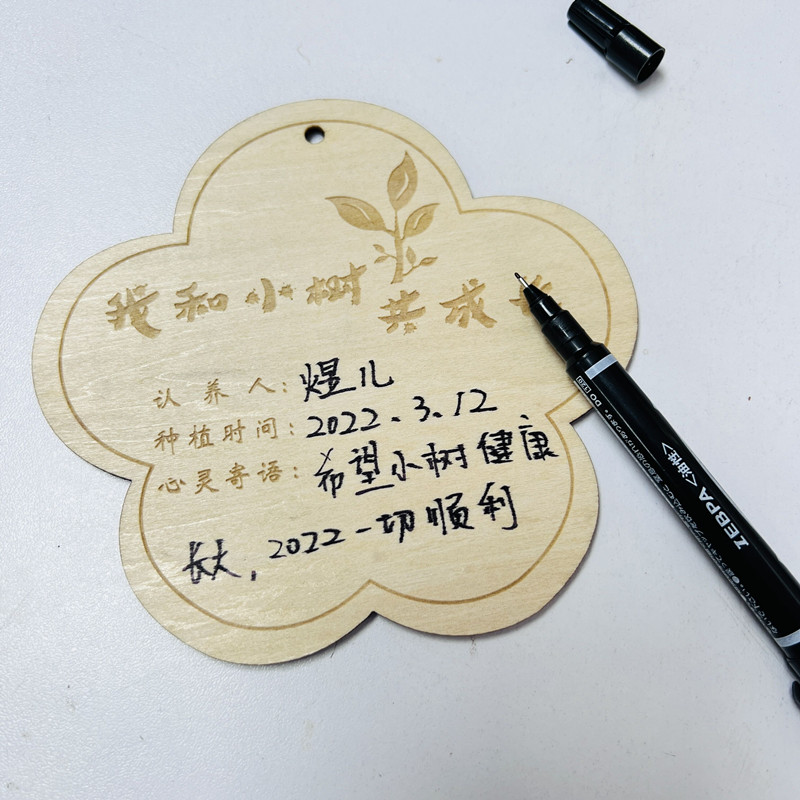 我和小树
共成长
认养人：煜儿
种植时间：2022.3.12
心灵寄语：希望小树健康
长大，2022一切顺利
ZEBPA<油性>